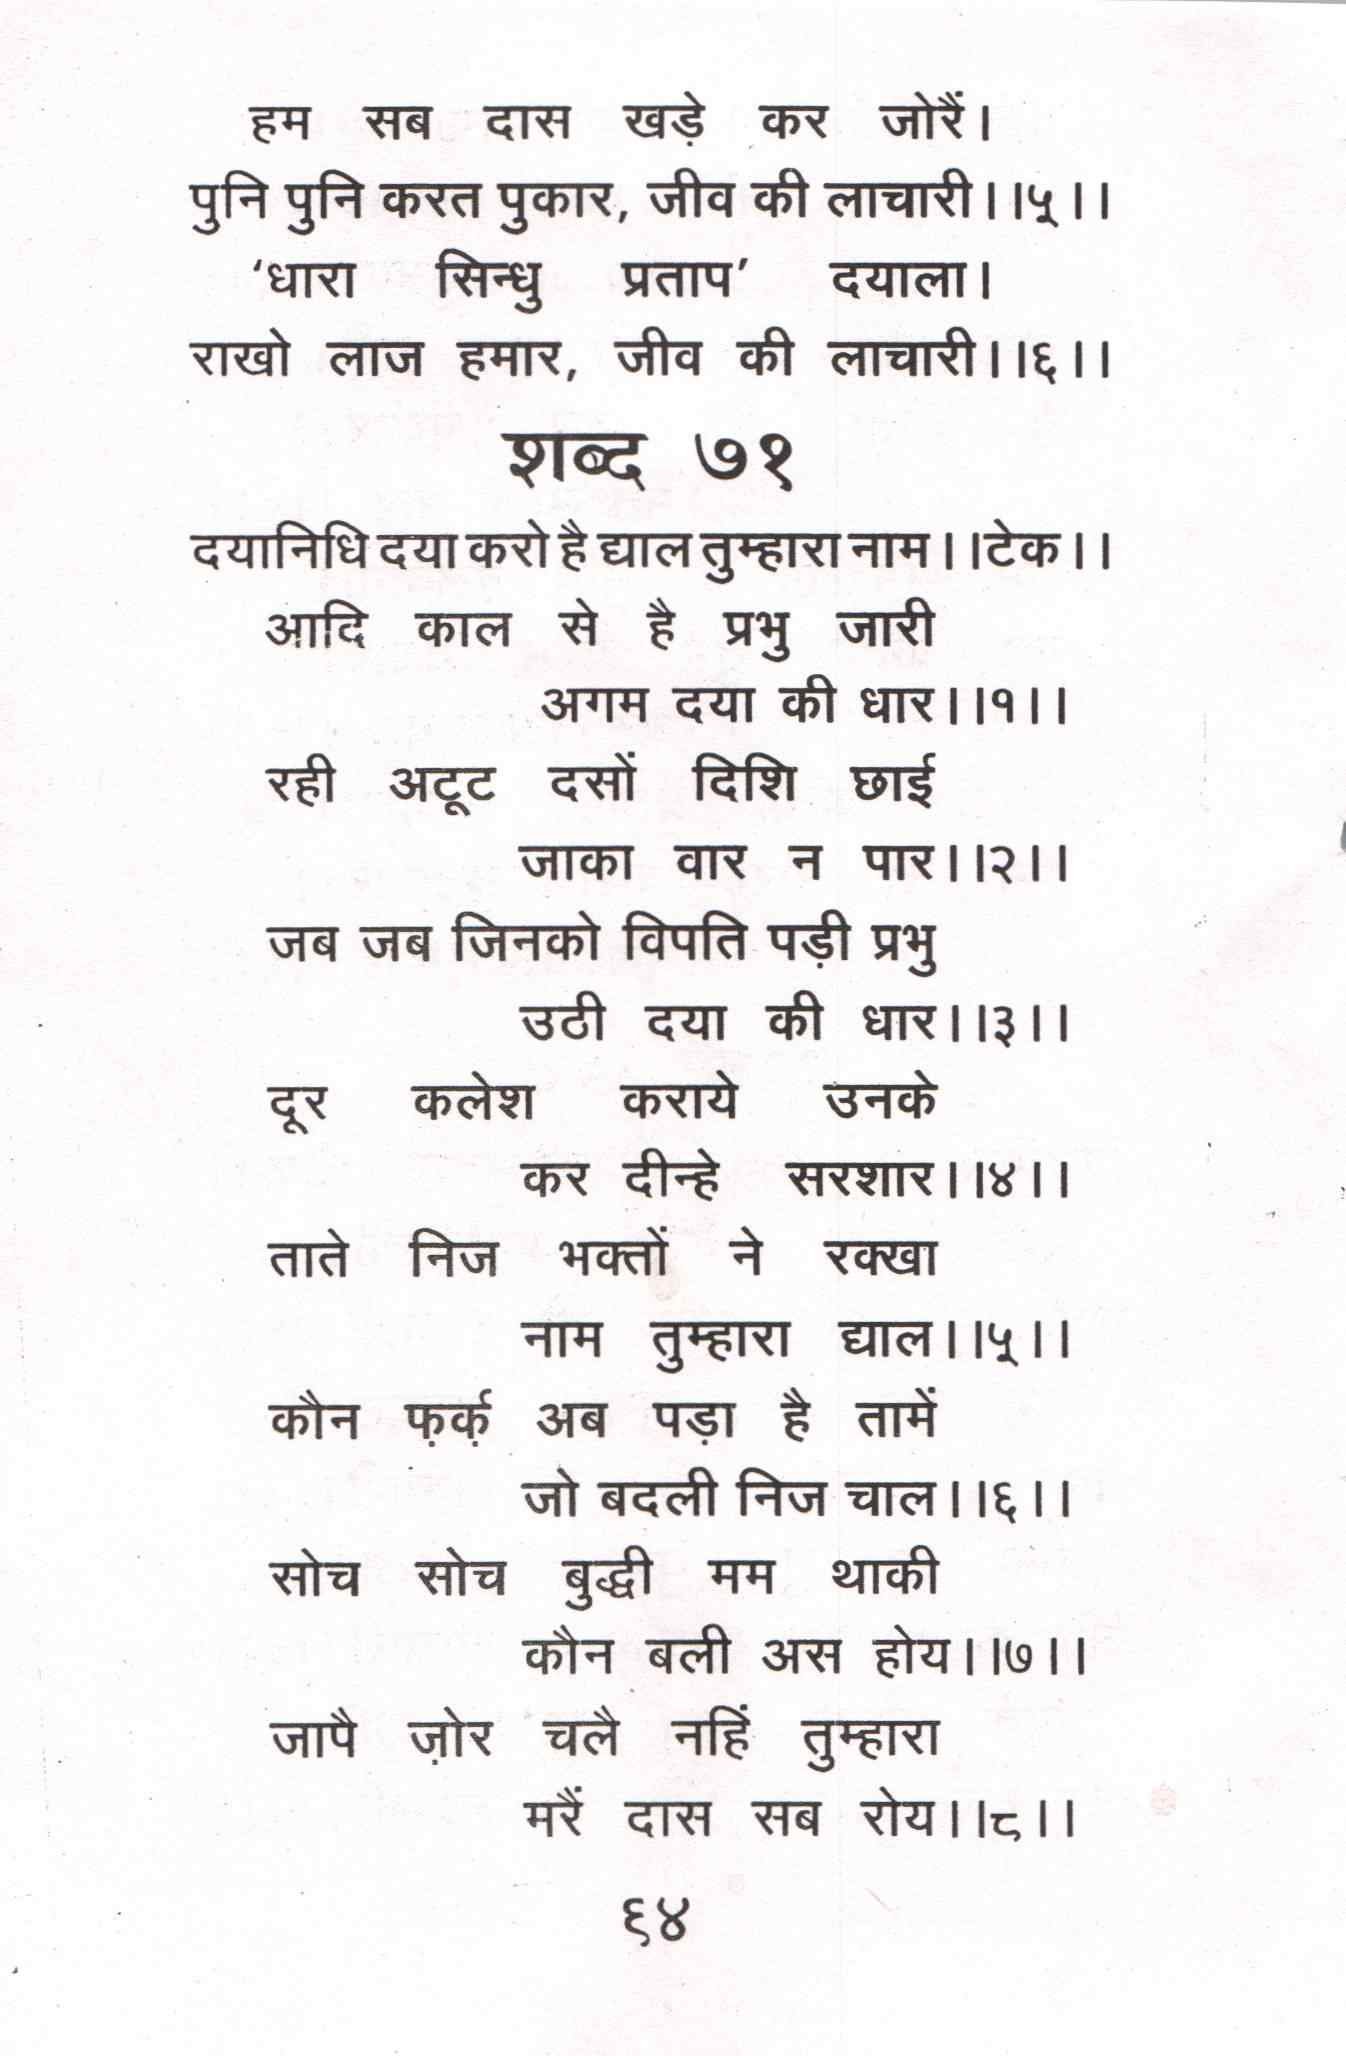 हम सब दास खड़े कर जोरैं।
पुनि पुनि करत पुकार, जीव की लाचारी।।५।।
‘धारा सिन्धु प्रताप’ दयाला।
राखो लाज हमार, जीव की लाचारी।।६।।
शब्द ७१
दयानिधि दया करो है द्याल तुम्हारा नाम।।टेक।।
आदि काल से है प्रभु जारी
अगम दया की धार।।१।।
रही अटूट दसों दिशि छाई
जाका वार न पार।।२।।
जब जब जिनको विपति पड़ी प्रभु
उठी दया की धार।।३।।
दूर कलेश कराये उनके
कर दीन्हे सरशार।।४।।
ताते निज भक्तों ने रक्खा
नाम तुम्हारा द्याल।।५।।
कौन फ़र्क़ अब पड़ा है तामें
जो बदली निज चाल।।६।।
सोच सोच बुद्धी मम थाकी
कौन बली अस होय।।७।।
जापै ज़ोर चलै नहिं तुम्हारा
मरैं दास सब रोय।।८।।
६४